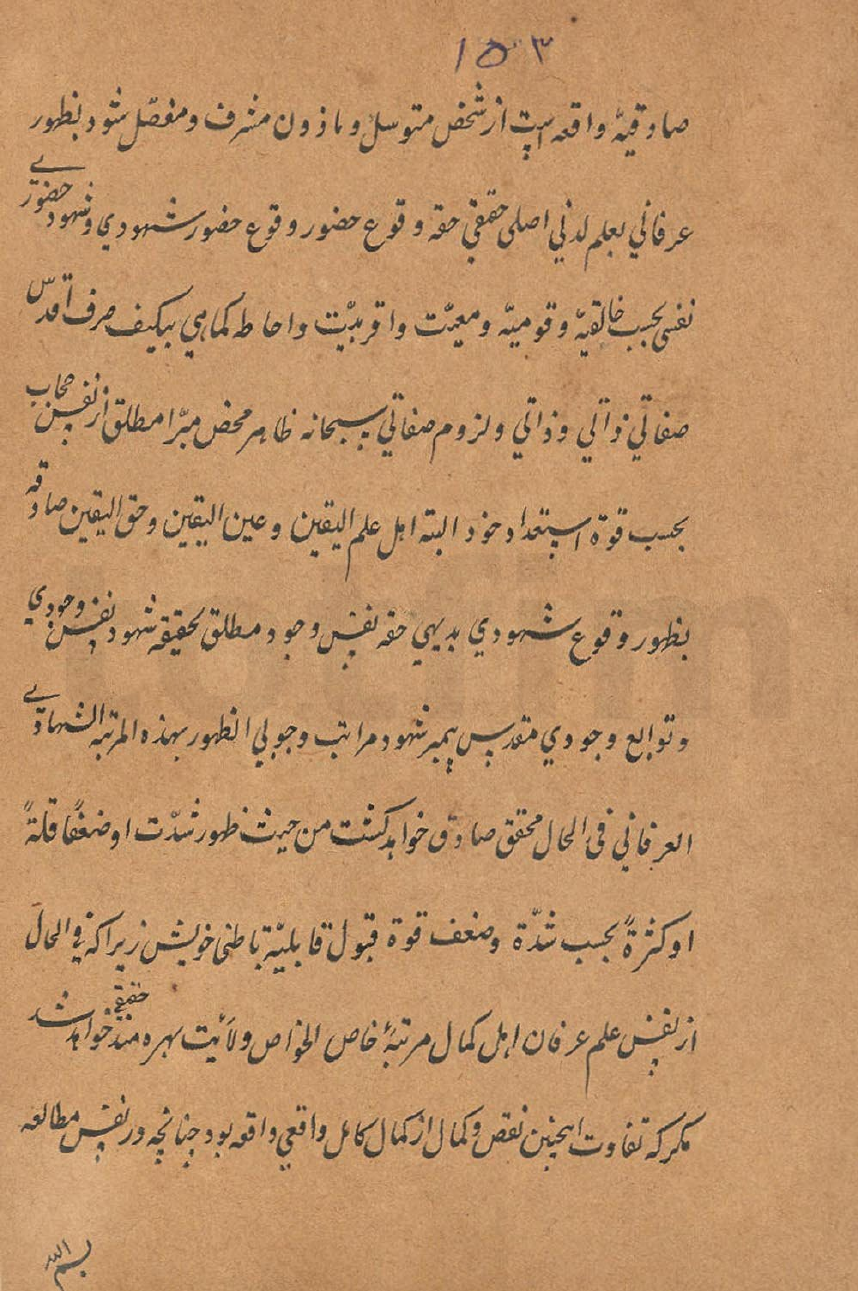 ۱۵۳
صادقیهٔ واقعه است از شخص متوسل و ماذون مشرف و مفصّل شود بظهور
عرفاني بعلم لدني اصلی حقيقي حقه وقوع حضور وقوع حضور شهودي و شهود حضوري
نفسی بحسب خالقیهٔ و قومیتهٔ و معیّت و اقربیّت و احاطه كماهي بيكيف صرف اقدس
صفاتي ذاتي و ذاتي و لزوم صفاتي سبحانه ظاهر محض مبرّا مطلق از نفس حجاب
بحسب قوة استعداد خود البته اهل علم اليقين و عين اليقين و حق اليقين صادقه
بظهور وقوع شهودي بديهي حقه نفس وجود مطلق بحقيقه شهود نفس وجودي
و توابع وجودي مقدس بيمبر شهود مراتب وجوبي الظهور بهذه المرتبه الشهادي
العرفاني فی الحال محقق صادق خواهد کشت من حیث ظهور شدّت او ضعفًا قلةً
او کثرةً بحسب شدّة و ضعف قوة قبول قابلیّة باطنی خویش زیرا که فی الحال
از نفس علم عرفان اهل کمال مرتبهٔ خاص الخواص ولایت حقیقی بهره مند خواهد شد
مکر که تفاوت اینچنین نقص و کمال از کمال کامل واقعي واقعه بود چنانچه در نفس مطالعه
بسم الله